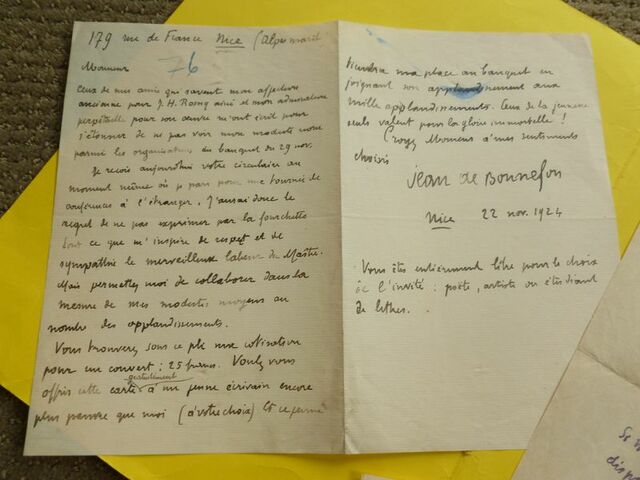 179 rue de France Nice (Alpes marit
76
Monsieur
Ceux de mes amis qui savent mon affection
ancienne pour J. H. Rosny aîné et mon admiration
perpétuelle pour son œuvre m'ont écrit pour
s'étonner de ne pas voir mon modeste nom
parmi les organisateurs du banquet du 29 nov.
Je reçois aujourd'hui votre circulaire au
moment même où je pars pour une tournée de
conférences à l'étranger. J'aurai donc le
regret de ne pas exprimer par la fourchette
tout ce que m'inspire de respect et de
sympathie le merveilleux labeur du Maître.
Mais permettez moi de collaborer dans la
mesure de mes modestes moyens au
nombre des applaudissements.
Vous trouverez sous ce pli ma cotisation
pour un couvert : 25 francs. Voulez vous
gratuitement
offrir cette carte à un jeune écrivain encore
plus pauvre que moi (à votre choix) Et ce jeune
viendra ma place au banquet en
joignant son applaudissement aux
mille applaudissements. Ceux de la jeunesse
seuls valent pour la gloire immortelle !
Croyez Monsieur à mes sentiments
choisis
Jean de Bonnefon
Nice 22 nov. 1924
Vous êtes entièrement libre pour le choix
de l'invité : poète, artiste ou étudiant
de lettres.